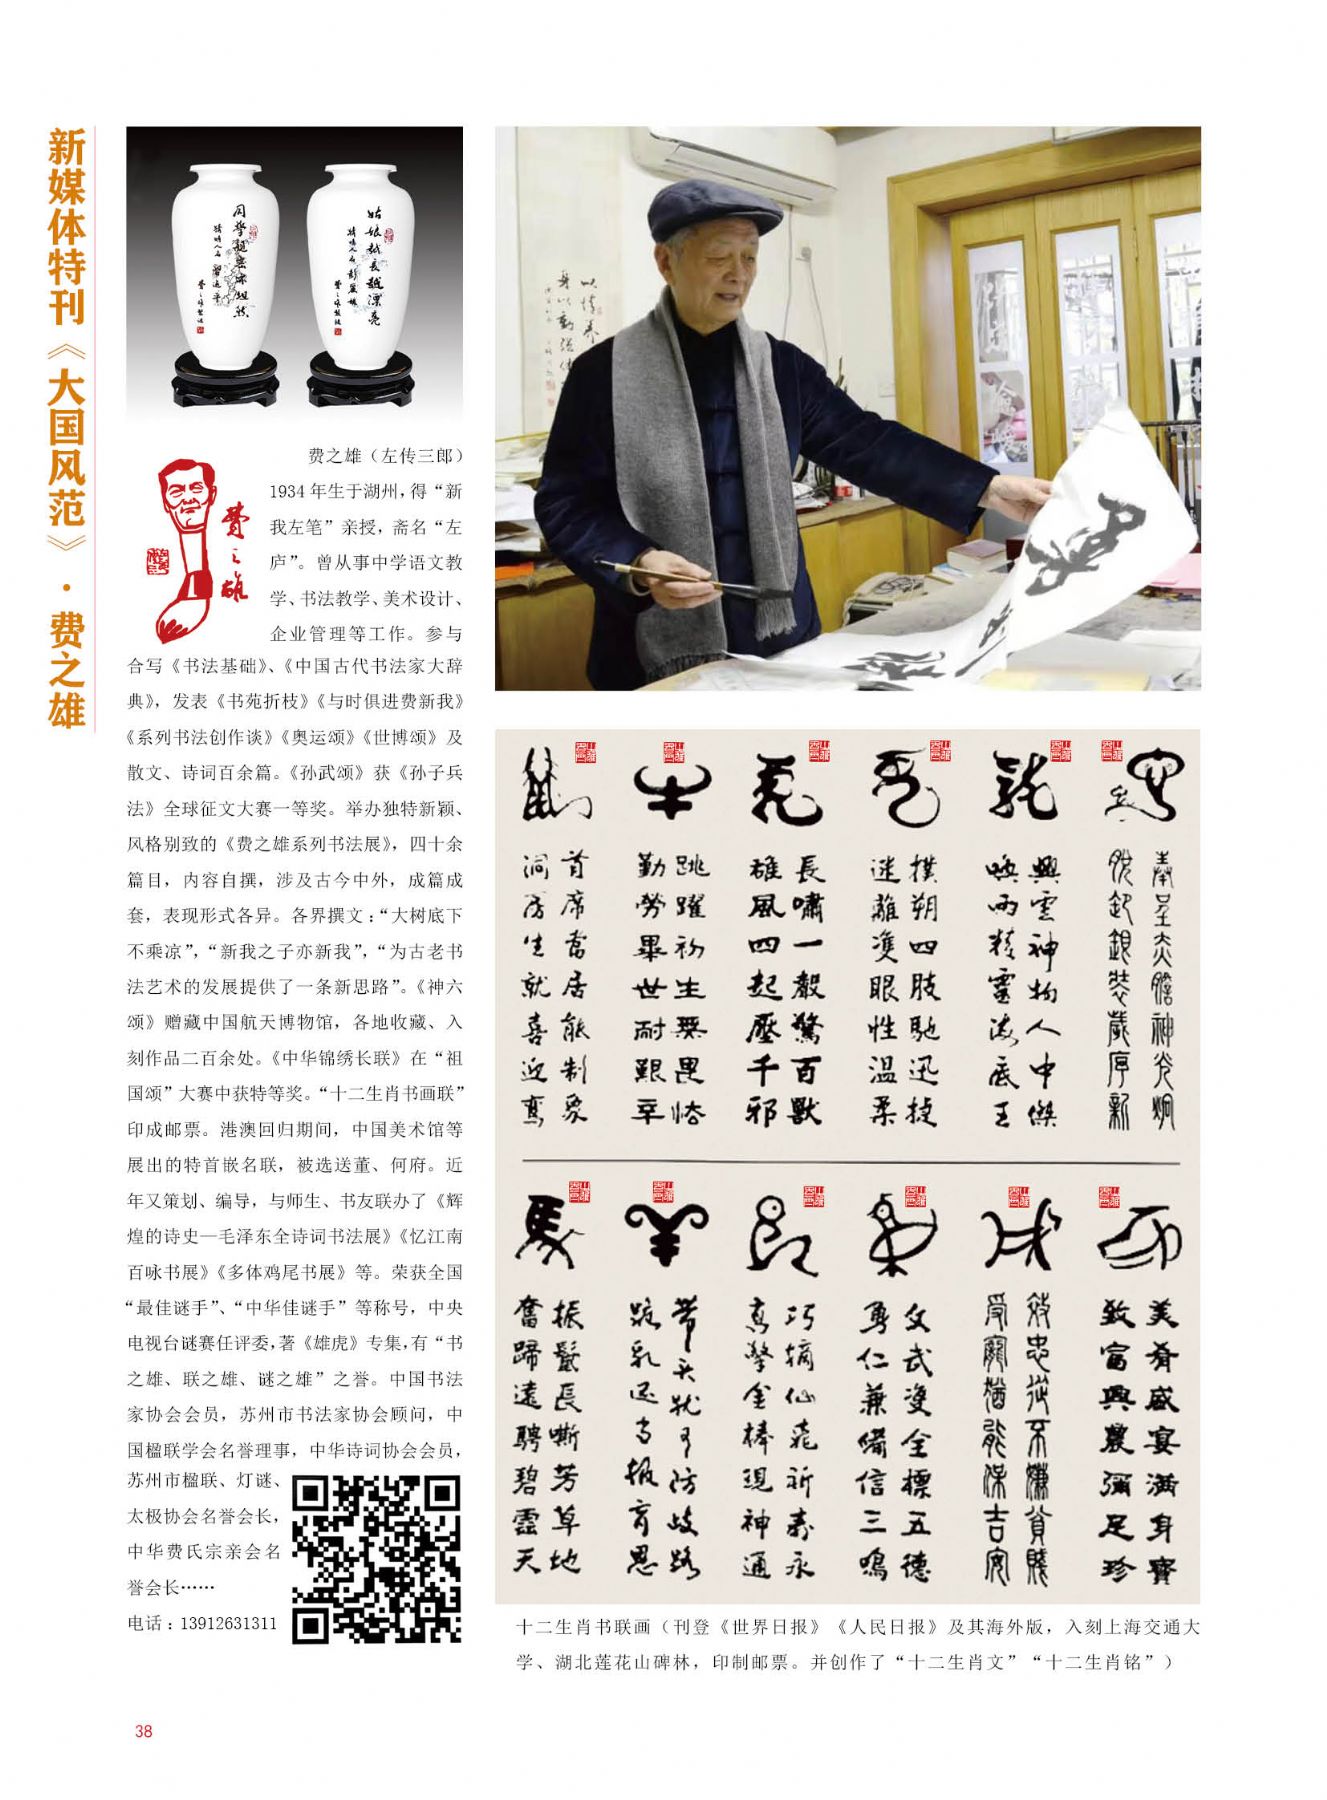 新媒体特刊《大国风范》·费之雄
姑娘越长越漂亮
费之雄
费之雄（左传三郎）
1934年生于湖州，得“新
我左笔”亲授，斋名“左
庐”。曾从事中学语文教
学、书法教学、美术设计、
企业管理等工作。参与
合写《书法基础》、《中国古代书法家大辞
典》，发表《书苑折枝》《与时俱进费新我》
《系列书法创作谈》《奥运颂》《世博颂》及
散文、诗词百余篇。《孙武颂》获《孙子兵
法》全球征文大赛一等奖。举办独特新颖、
风格别致的《费之雄系列书法展》，四十余
篇目，内容自撰，涉及古今中外，成篇成
套，表现形式各异。各界撰文：“大树底下
不乘凉”，“新我之子亦新我”，“为古老书
法艺术的发展提供了一条新思路”。《神六
颂》赠藏中国航天博物馆，各地收藏、入
刻作品二百余处。《中华锦绣长联》在“祖
国颂”大赛中获特等奖。“十二生肖书画联”
印成邮票。港澳回归期间，中国美术馆等
展出的特首嵌名联，被选送董、何府。近
年又策划、编导，与师生、书友联办了《辉
煌的诗史—毛泽东全诗词书法展》《忆江南
百咏书展》《多体鸡尾书展》等。荣获全国
“最佳谜手”、“中华佳谜手”等称号，中央
电视台谜赛任评委，著《雄虎》专集，有“书
之雄、联之雄、谜之雄”之誉。中国书法
家协会会员，苏州市书法家协会顾问，中
国楹联学会名誉理事，中华诗词协会会员，
苏州市楹联、灯谜、
太极协会名誉会长，
中华费氏宗亲会名
誉会长……
电话：13912631311
首席當居能制象
洞房生就喜迎鸞
跳躍初生無畏怯
勤勞畢世耐艱辛
長嘯一聲驚百獸
雄風四起壓千邪
撲朔四肢馳迅捷
迷離雙眼性溫柔
興雲神物人中傑
喚雨精靈海底王
振鬣長嘶芳草地
奮蹄遠騁碧雲天
帶頭犹可防歧路
跪乳还當报育恩
巧摘仙桃祈壽永
高擎金棒現神通
文武雙全標五德
勇仁兼備信三鳴
效忠從不嫌貧賤
受寵猶能保吉安
美肴盛宴滿身寶
致富興農彌足珍
十二生肖书联画（刊登《世界日报》《人民日报》及其海外版，入刻上海交通大
学、湖北莲花山碑林，印制邮票。并创作了“十二生肖文”“十二生肖铭”）
38